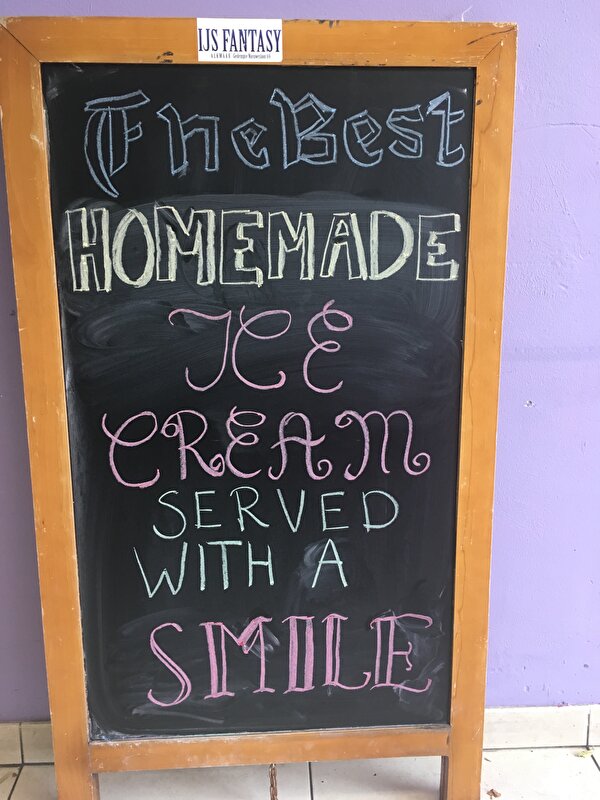 IJS FANTASY
The Best
HOMEMADE
ICE
CREAM
SERVED
WITH A
SMILE